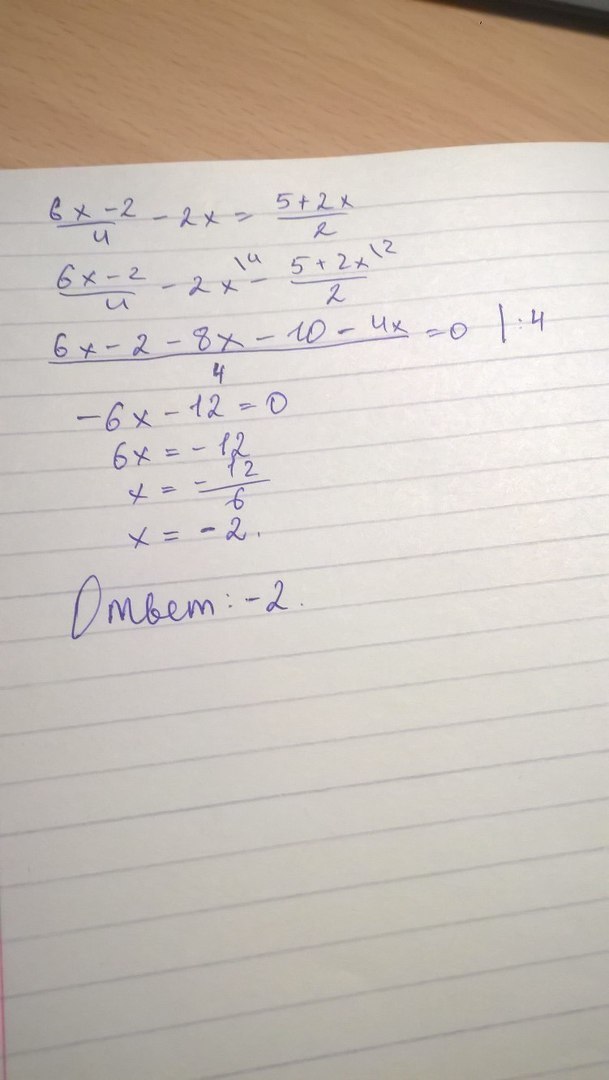 (6x - 2)/4 - 2x = (5 + 2x)/2
(6x - 2)/4 - 2x\4 - (5 + 2x\2)/2
(6x - 2 - 8x - 10 - 4x)/4 = 0 | : 4
-6x - 12 = 0
6x = -12
x = -12/6
x = -2.
Ответ: -2.